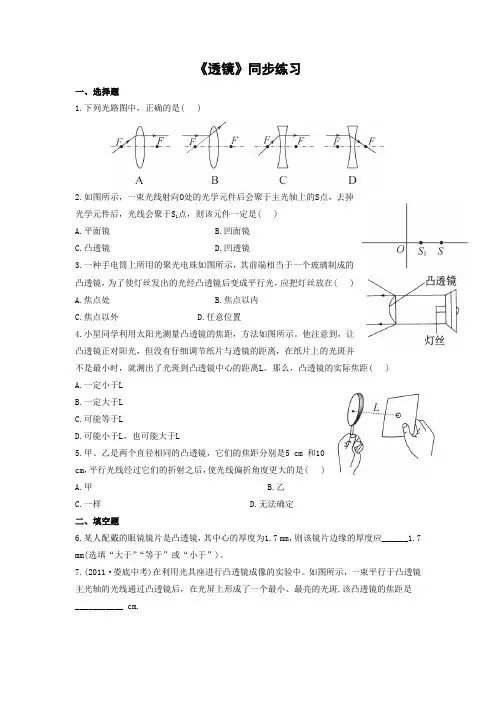 《透镜》同步练习
一、选择题
1.下列光路图中，正确的是( )
F F F F F F F F
A B C D
2.如图所示，一束光线射向O处的光学元件后会聚于主光轴上的S点，去掉
光学元件后，光线会聚于S₁点，则该元件一定是( )
A.平面镜 B.凹面镜
C.凸透镜 D.凹透镜
O S₁ S
3.一种手电筒上所用的聚光电珠如图所示，其前端相当于一个玻璃制成的
凸透镜，为了使灯丝发出的光经凸透镜后变成平行光，应把灯丝放在( )
A.焦点处 B.焦点以内
C.焦点以外 D.任意位置
凸透镜
灯丝
4.小星同学利用太阳光测量凸透镜的焦距，方法如图所示。他注意到，让
凸透镜正对阳光，但没有仔细调节纸片与透镜的距离，在纸片上的光斑并
不是最小时，就测出了光斑到凸透镜中心的距离L。那么，凸透镜的实际焦距( )
A.一定小于L
B.一定大于L
C.可能等于L
D.可能小于L，也可能大于L
L
5.甲、乙是两个直径相同的凸透镜，它们的焦距分别是5 cm 和10
cm，平行光线经过它们的折射之后，使光线偏折角度更大的是( )
A.甲 B.乙
C.一样 D.无法确定
二、填空题
6.某人配戴的眼镜镜片是凸透镜，其中心的厚度为1.7 mm，则该镜片边缘的厚度应______1.7
mm(选填“大于”“等于”或“小于”)。
7.(2011·娄底中考)在利用光具座进行凸透镜成像的实验中。如图所示，一束平行于凸透镜
主光轴的光线通过凸透镜后，在光屏上形成了一个最小、最亮的光斑.该凸透镜的焦距是
___________ cm.